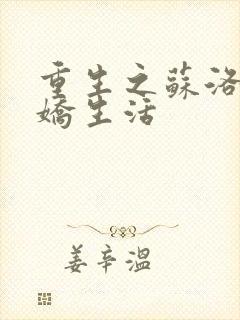 重生之蘇洛
嬌生活
姜辛溫